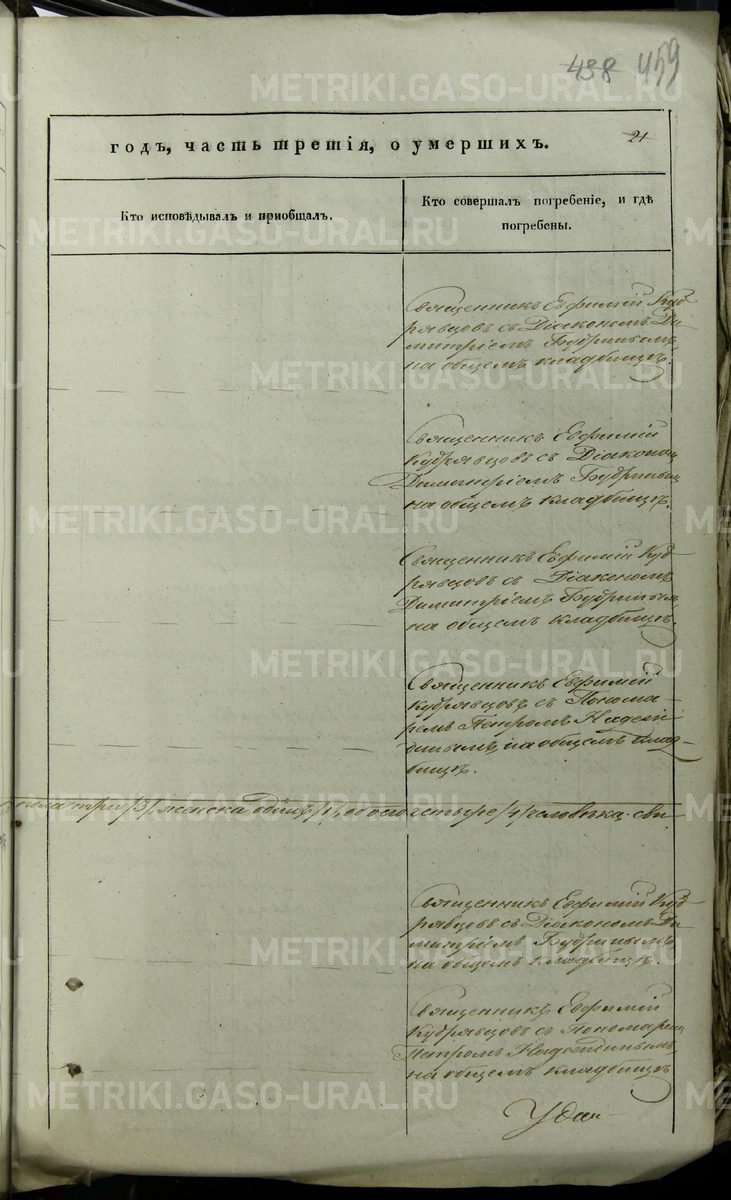 438 459
METRIKI.GASO-URAL.RU
годъ, часть третія, о умершихъ.
21
Кто исповѣдывалъ и пріобщалъ.
Кто совершалъ погребеніе, и гдѣ
погребены.
Священникъ Евфимій Куд
рявцовъ съ Діакономъ Ди
митріемъ Будринымъ
на общемъ кладбищѣ.
Священникъ Евфимій
Кудрявцовъ съ Діакономъ
Димитріемъ Будринымъ
на общемъ кладбищѣ.
Священникъ Евфимій Куд
рявцовъ съ Діакономъ
Димитріемъ Будринымъ
на общемъ кладбищѣ.
Священникъ Евфимій
Кудрявцовъ съ Понома-
ремъ Петромъ
на общемъ клад-
бищѣ.
пола три /3/, женска одинъ /1/, обоего четыре /4/ человѣка. сви
Священникъ Евфимій Куд
рявцовъ съ Діакономъ Ди
митріемъ Будринымъ
на общемъ кладбищѣ.
Священникъ Евфимій
Кудрявцовъ съ Пономаремъ
Петромъ
на общемъ кладбищѣ